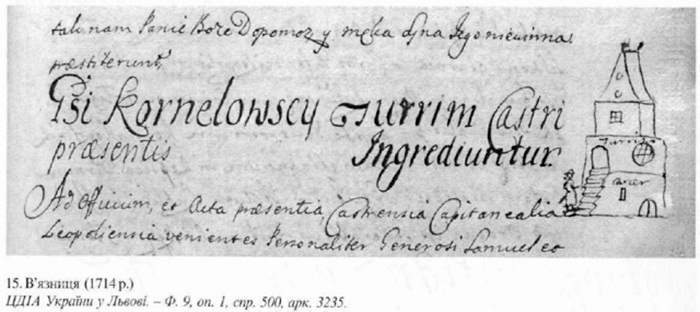 tak nam Panie Boże Dopomoż y męka
præstiterunt
Gsi Kornelowscy Turrim Castri
præsentis Ingrediuntur.
Turris
carcer
Ad Officium, et Acta præsentia, Castrensia Capitanealia
Leopoliensia venientes Personaliter Generosi Samuel et
15. В'язниця (1714 р.)
ЦДІА України у Львові. – Ф. 9, оп. 1, спр. 500, арк. 3235.